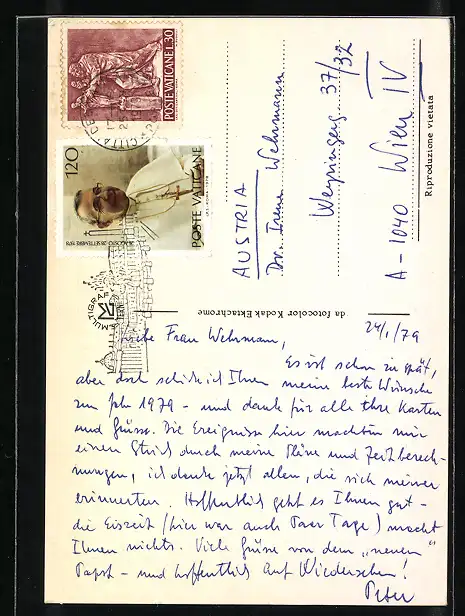 POSTE VATICANE L.30
120
POSTE VATICANE
26 AGOSTO 28 SETTEMBRE 1978
CITTA
MULTIGRAF
AUSTRIA
Dr. Irene Wehrmann
Weyringerg 37/32
A-1040 Wien IV
Riproduzione vietata
da fotocolor Kodak Ektachrome
24/1/79
Liebe Frau Wehrmann,
Es ist schon zu spät,
aber doch schicke ich Ihnen meine beste Wünsche
zum Jahr 1979 - und danke für alle Ihre Karten
und Grüsse. Die Ereignisse hier machten mir
einen Strich durch meine Pläne und Zeitberech-
nungen, ich danke jetzt allen, die sich meiner
erinnerten. Hoffentlich geht es Ihnen gut -
die Eiszeit (hier war auch Paar Tage) macht
Ihnen nichts. Viele Grüsse von dem „neuen"
Papst - und hoffentlich Auf Wiedersehen!
Peter